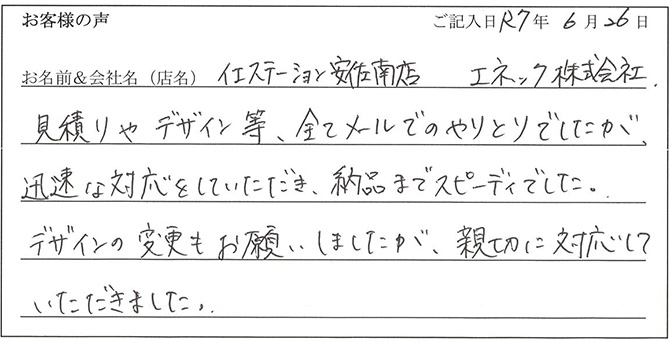 お客様の声 ご記入日 R7年 6月 26日
お名前&会社名（店名） イエステーション安佐南店 エネック株式会社.
見積りや デザイン等、全てメールでのやりとりでしたが、
迅速な対応をしていただき、納品までスピーディでした。
デザインの変更もお願いしましたが、親切に対応して
いただきました。